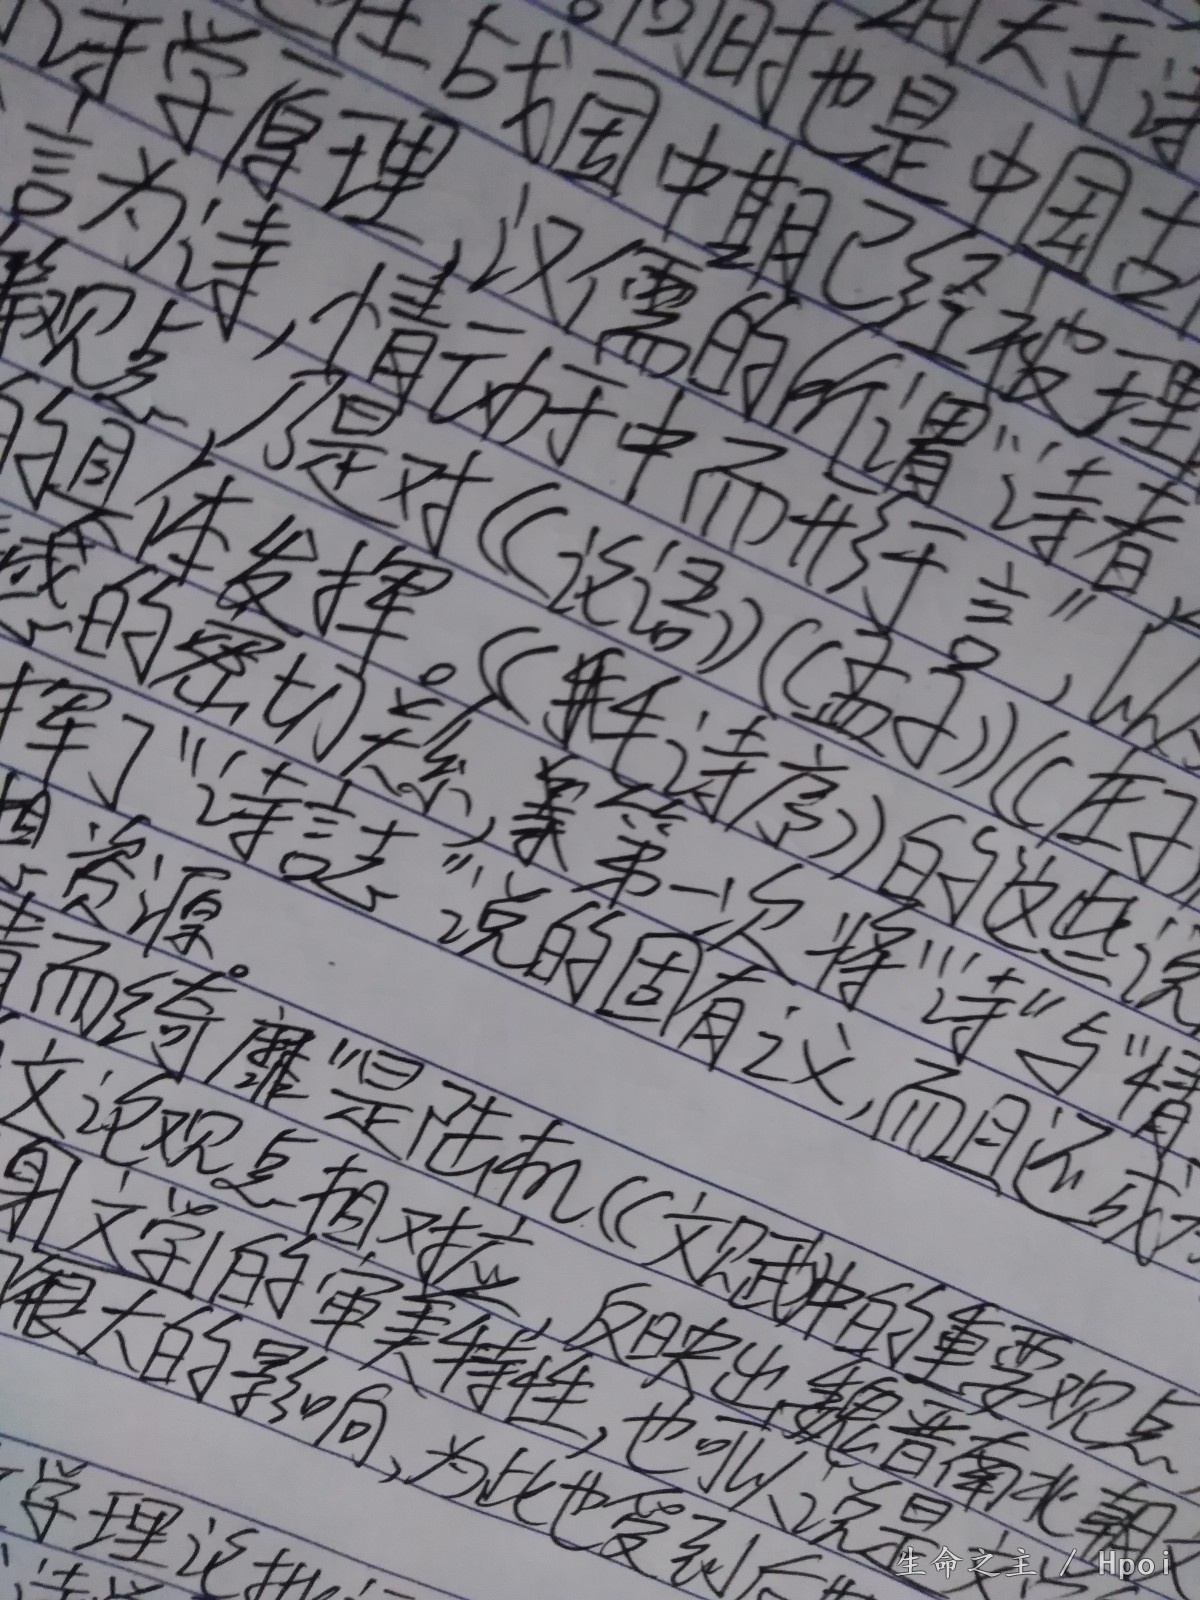 的关于诗
。同时也是中国古
在战国中期已经被理
诗学原理,汉儒的所谓"诗者,
言为诗,情动于中而形于言",以
等观点,乃是对《论语》《孟子》《庄子》
的具体发挥。《毛诗序》的这些说
感的密切关系,第一次将"诗"与"情
挥了"诗言志"说的固有之义,而且还成为
思资源。
情而绮靡"是陆机《文赋》中的重要观点
文论观点相对应,反映出魏晋南北朝
文学的审美特性,也可以说是文
很大的影响,为此也受到后世
学理论
生命之主 / Hpoi